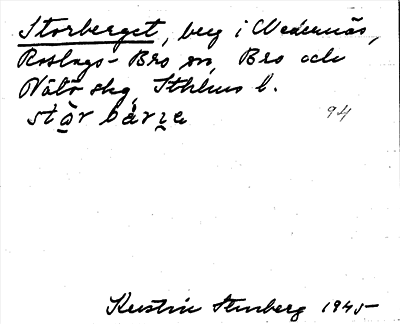 Storberget, berg i Nedernäs,
Roslags-Bro sn, Bro och
Vätö skg, Sthlms l.
94
Kerstin Stenberg 1945